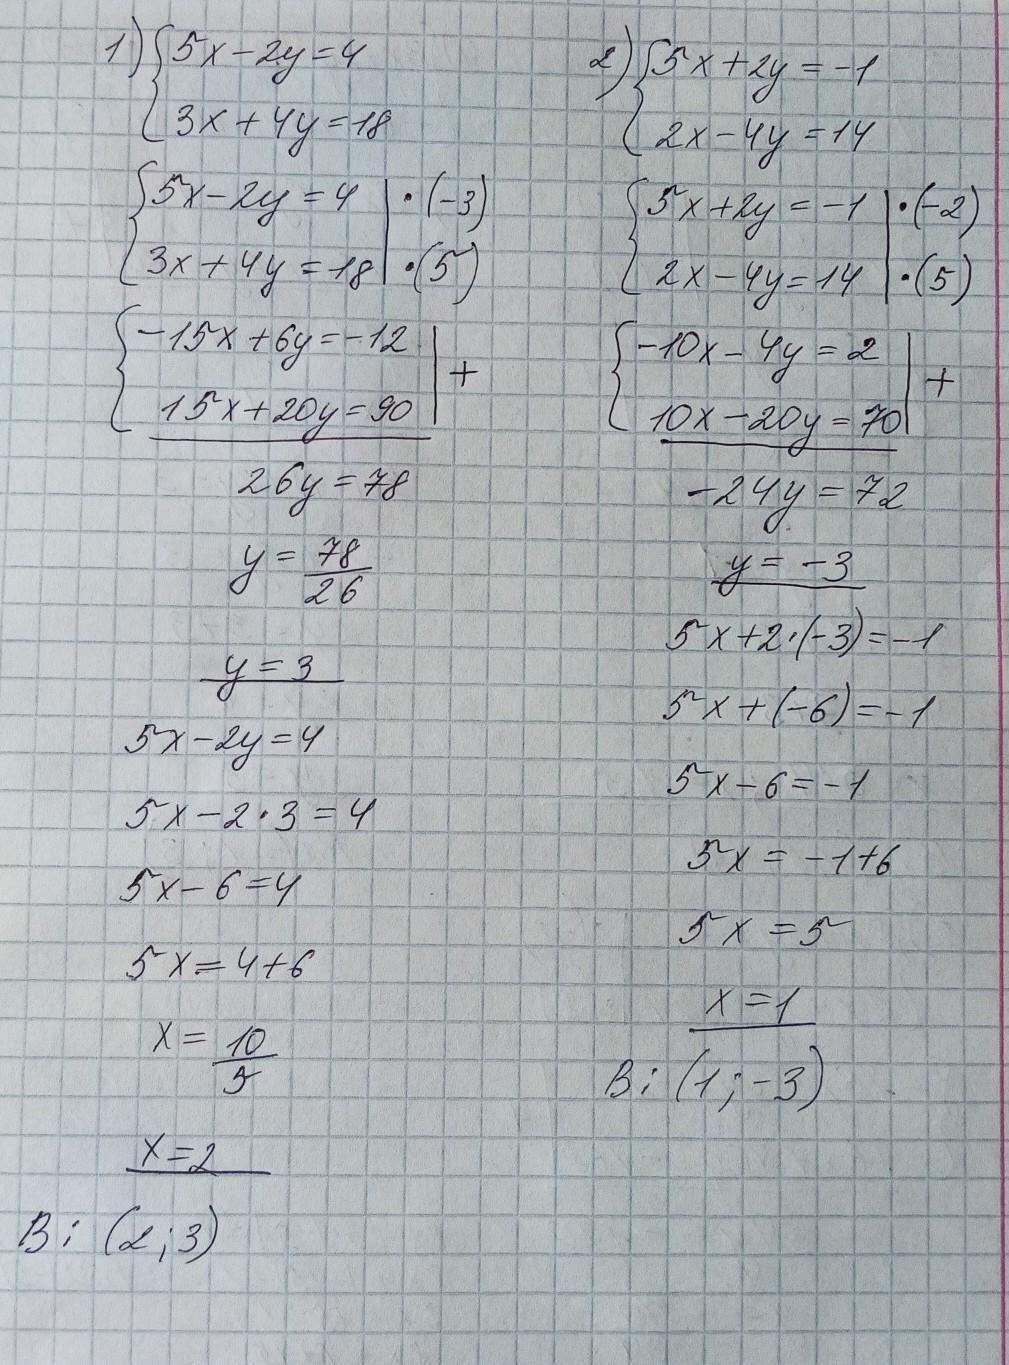 1) {5x-2y=4
3x+4y=18
{5x-2y=4 | ·(-3)
3x+4y=18 | ·(5)
{-15x+6y=-12 | +
15x+20y=90
26y=78
y=78/26
y=3
5x-2y=4
5x-2·3=4
5x-6=4
5x=4+6
x=10/5
x=2
В: (2;3)
2) {5x+2y=-1
2x-4y=14
{5x+2y=-1 | ·(-2)
2x-4y=14 | ·(5)
{-10x-4y=2 | +
10x-20y=70
-24y=72
y=-3
5x+2·(-3)=-1
5x+(-6)=-1
5x-6=-1
5x=-1+6
5x=5
x=1
В: (1;-3)